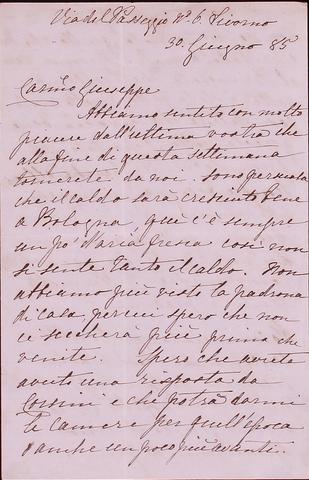 Via del Passeggio N° 6. Livorno
30. Giugno 85
Carmo Giuseppe
Abbiamo sentito con molto
piacere dall'ultima vostra che
alla fine di questa settimana
tornerete da noi. Sono persuasa
che il caldo sarà cresciuto bene
a Bologna, qui c'è sempre
un po' d'aria fresca così non
si sente tanto il caldo. Non
abbiamo più visto la padrona
di casa, per cui spero che non
ci seccherà più prima che
venite. Spero che avrete
avuto una risposta da
Corsini e che potrà darmi
le camere per quell'epoca
e anche un poco più avanti.